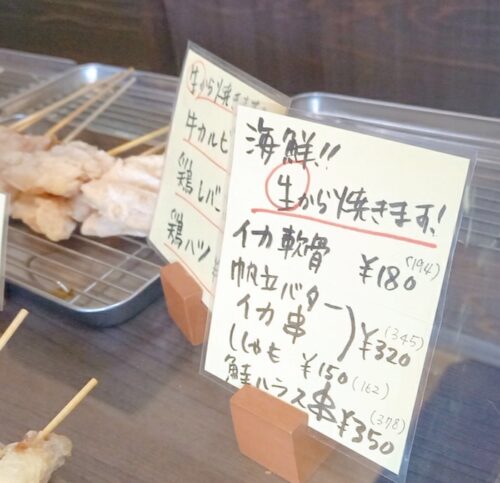 生から焼きま
牛カルビ
鶏レバー
鶏ハツ ¥
海鮮!!
生から焼きます!
イカ軟骨 ¥180 (194)
帆立バター
イカ串 ¥320 (345)
ししゃも ¥150 (162)
鮭ハラス串 ¥350 (378)